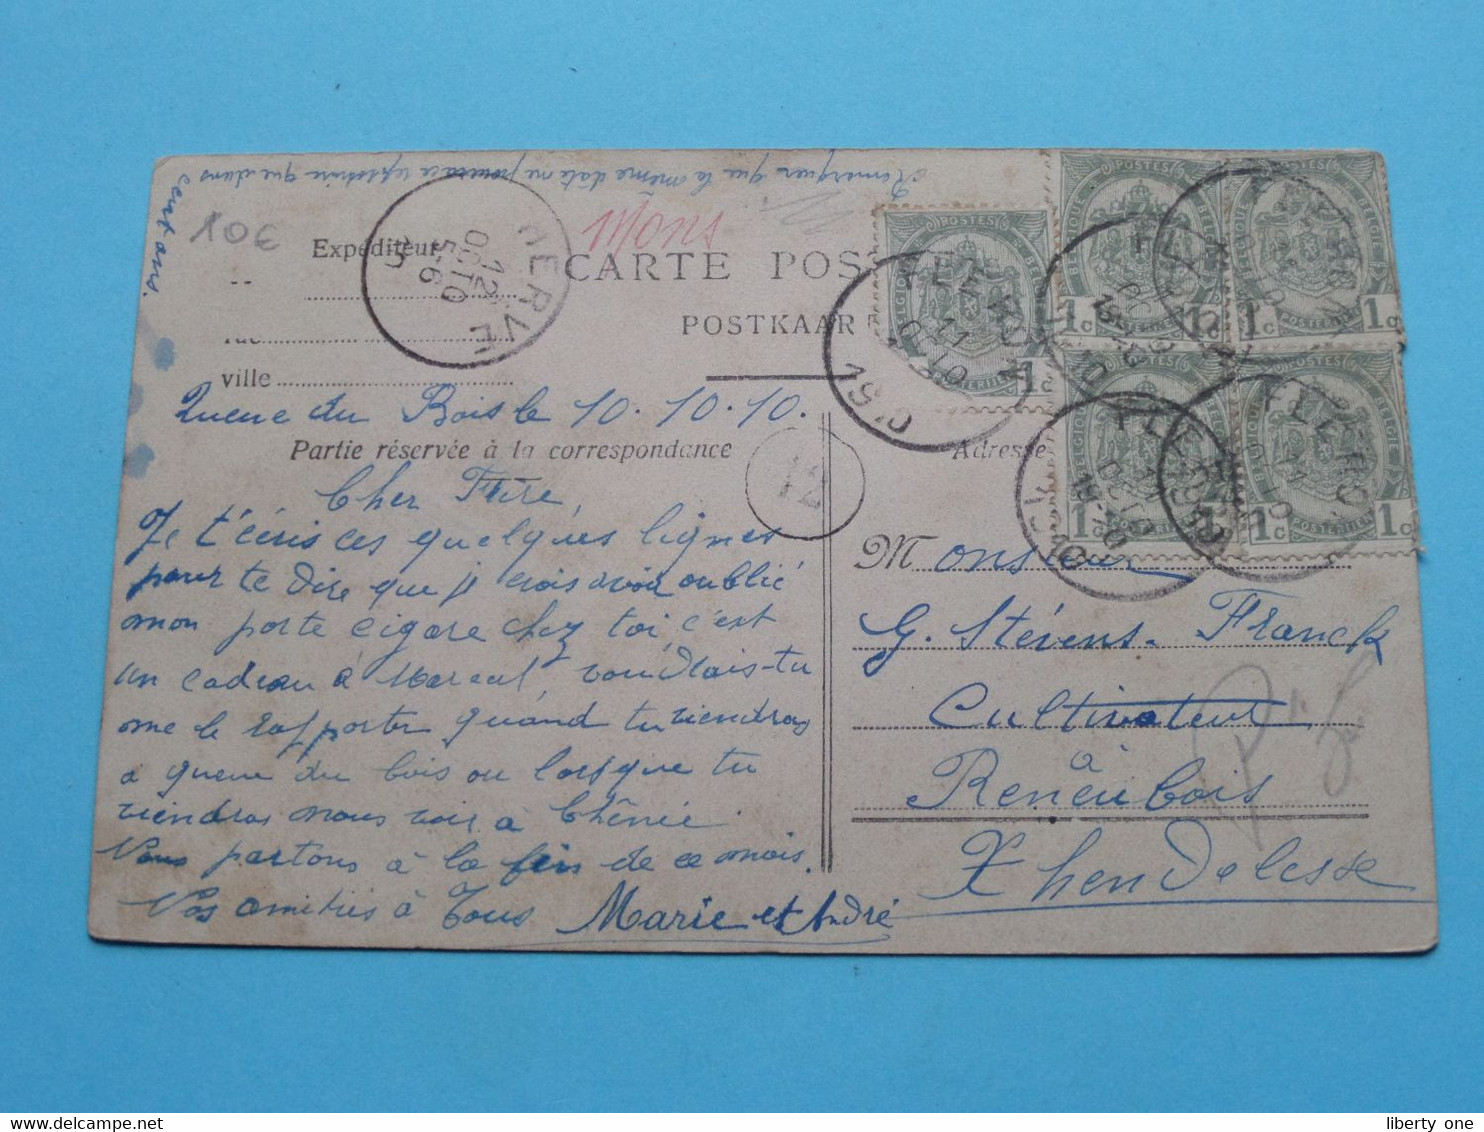 Remarquer que la même date ne pourra se reproduire que dans
cent ans.
10€
Mons
Expéditeur
CARTE POS
POSTKAAR
rue
ville
HERVE
12
OCTO
5-6
Queue du Bois le 10.10.10.
Partie réservée à la correspondance
Adresse
12
Cher Frère,
Je t'écris ces quelques lignes
pour te dire que je crois avoir oublié
mon porte cigare chez toi, c'est
un cadeau à Marcel, voudrais-tu
me le rapporter quand tu viendras
à queue du bois ou lorsque tu
viendras nous voir à Chênée
Nous partons à la fin de ce mois.
Nos amitiés à Tous Marie et André
Monsieur
G. Stévens-Franck
Cultivateur
à
Reneubois
Xhendelesse
POSTES
BELGIQUE
BELGIË
1c 1c
POSTERIJEN
FLERON
11
OCTO
1910
liberty one